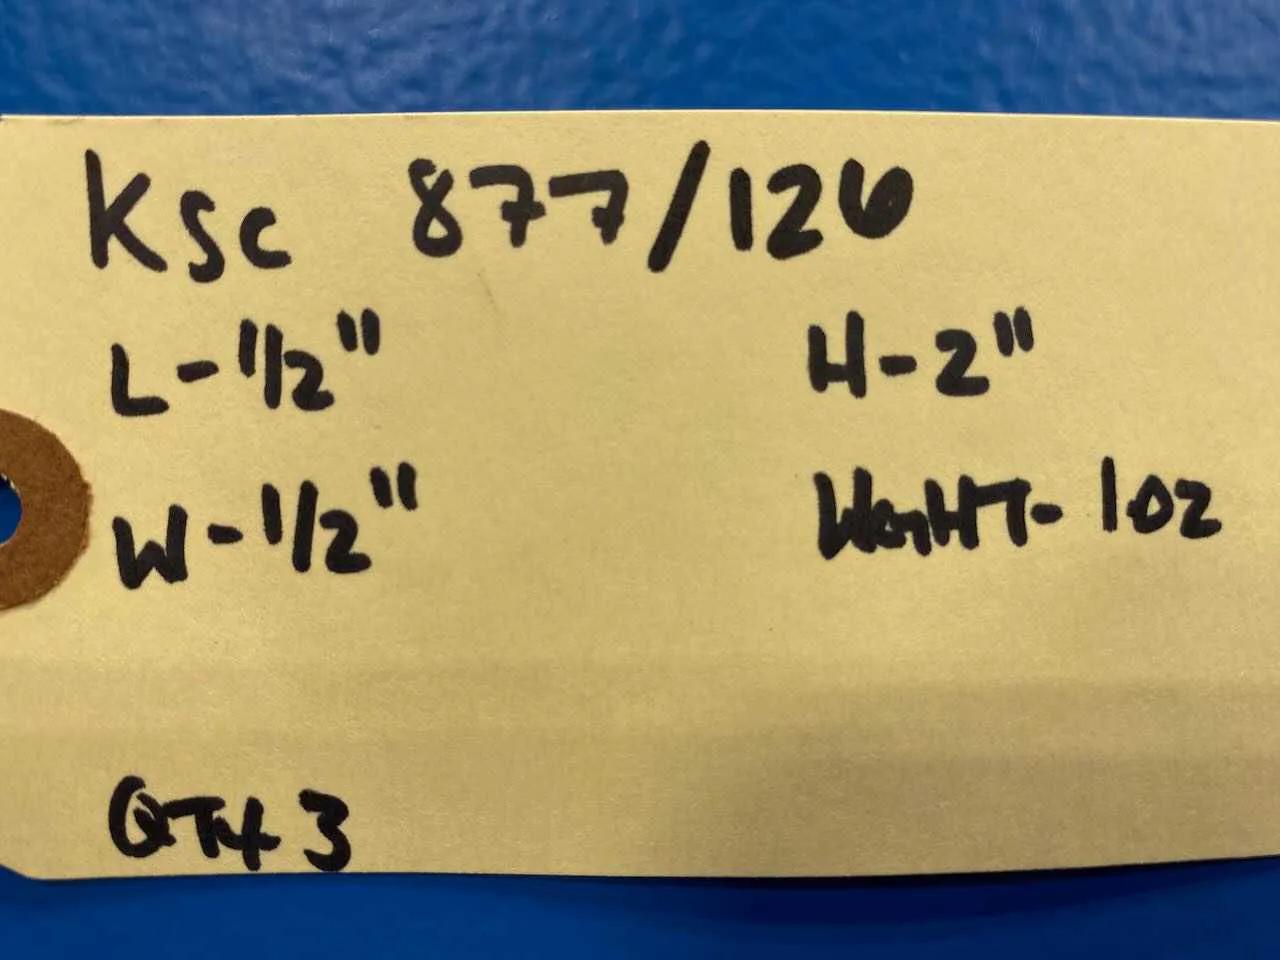 KSC 877/126
L-1/2" H-2"
W-1/2" WGHT-1oz
QTY 3